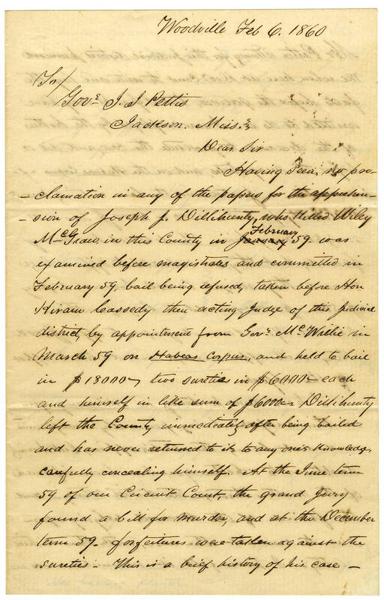 Woodville Feb 6. 1860
To/
Govr. J. J. Pettis
Jackson. Miss.
Dear Sir
Having seen no pro-
-clamation in any of the papers for the apprehen-
sion of Joseph J. Dillihunty, who killed Wiley
McGraw in this County in January February 59. was
examined before magistrates and committed in
February 59, bail being refused, taken before Hon
Hiram Cassedy then acting Judge of this Judicial
district, by appointment from Govr. McWillie in
March 59 on Habeas Corpus, and held to bail
in $18000- two sureties in $6000- each
and himself in like sum of $6000- Dillihunty
left the County immediately after being bailed
and has never returned to it to any one's knowledge
carefully concealing himself. At the June term
59 of our Circuit Court, the grand Jury
found a bill for murder and at the December
term 59- forfeitures were taken against the
sureties- This is a brief history of his case-